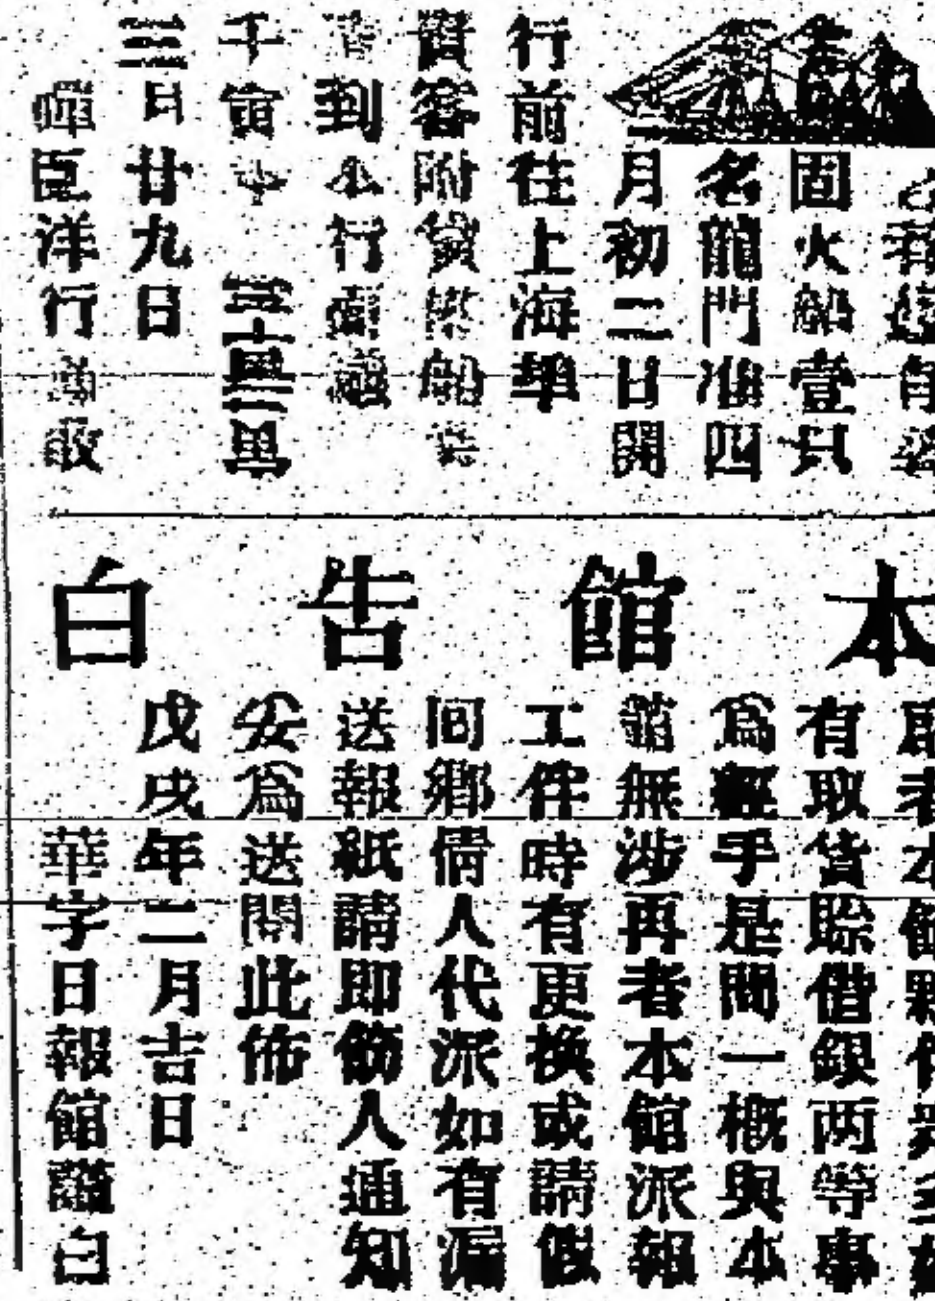 固火船壹只
名龍門准四
月初二日開
行前往上海華
貴客附貨搭船
到本行
三月廿九日
禪臣洋行謹啟
本館告白
啟者本館夥伴
有取貨賒借銀两等事
為經手是問一概與本
館無涉再者本館派報
工伴時有更換或請假
囘鄉倩人代派如有漏
送報紙請即飭人通知
妥為送閱此佈
戊戌年二月吉日
華字日報館謹白